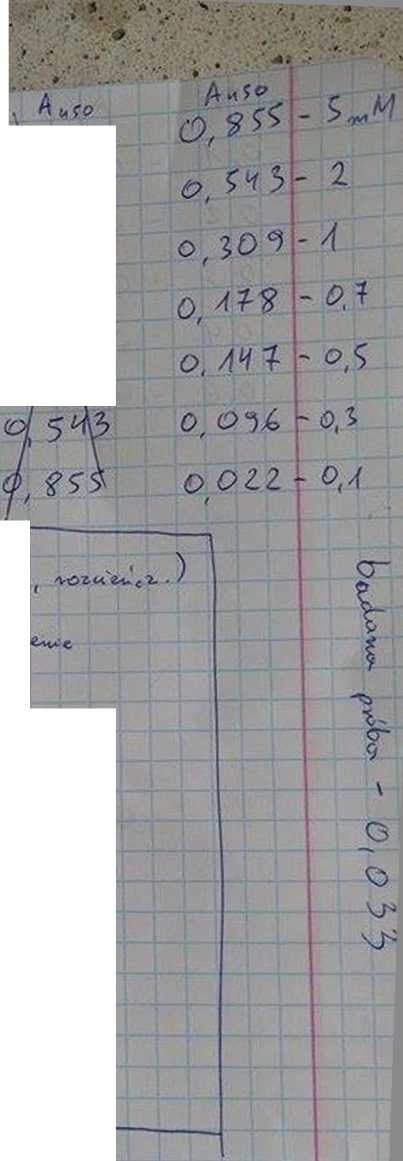 A450
A450
0,855 - 5mM
0,543 - 2
0,309 - 1
0,178 - 0,7
0,147 - 0,5
0,543
0,096 - 0,3
0,855
0,022 - 0,1
, rozcieńcz.)
enie
badana próba - 0,033